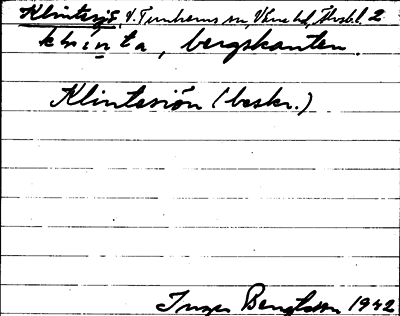 Klintesjö, V. Tunhems sn, Väne hd, Älvsb. l. 2
klinta, bergskanten.
Klintesjön (beskr.)
Inger Bengtsson 1942